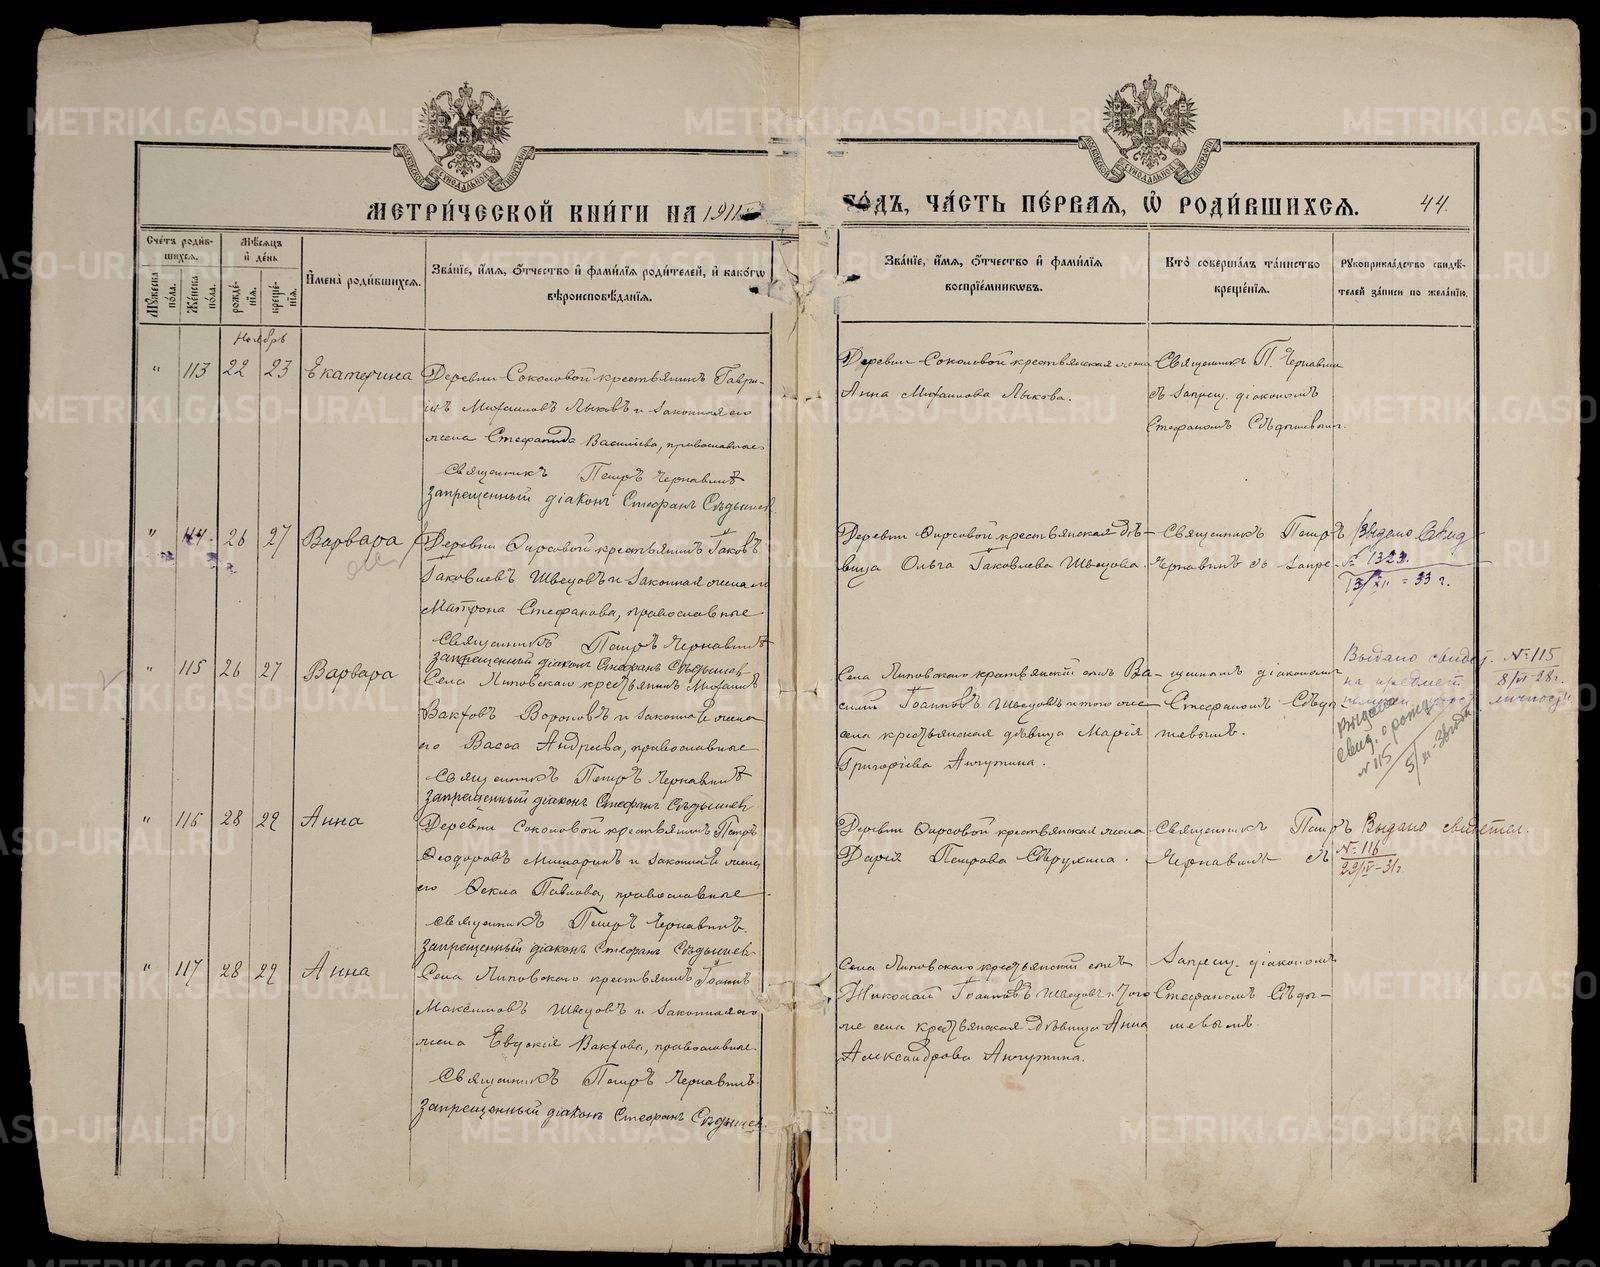 МЕТРИ́ЧЕСКОЙ КНИ́ГИ НА 1911
ГО́ДЪ, ЧА́СТЬ ПЕ́РВАЯ, Ѽ РОДИ́ВШИХСЯ.
44.
Сче́тъ роди́в-
шихся.
Мѣ́сяцъ
и҆ де́нь
Му́жеска
по́ла.
Же́нска
по́ла.
рожде́-
нїя.
креще́-
нїя.
И҆мена̀ роди́вшихся.
Зва́нїе, и҆́мя, ѻ҆́тчество и҆ фами́лїя роди́телей, и҆ како́гѡ
вѣроисповѣ́данїя.
Зва́нїе, и҆́мя, ѻ҆́тчество и҆ фами́лїя
воспрїе́мникѡвъ.
Кто̀ соверша́лъ та́инство
креще́нїя.
Рукоприкла́дство свидѣ́-
телей за́писи по жела́нїю.
Ноябрь
" 113 22 23 Екатерина
Деревни Соколовой крестьянинъ Гаври-
илъ Михаиловъ Лыковъ и законная его
жена Стефанида Васильева, православные
Священникъ Петръ Чернавинъ
Запрещенный діаконъ Стефанъ Сѣдышев
Деревни Соколовой крестьянская жена
Анна Михаилова Лыкова.
Священникъ П. Чернавин
съ запрещ. діакономъ
Стефаномъ Сѣдышевым.
" 114. 26 27 Варвара
Деревни Фирсовой крестьянинъ Іаковъ
Іаковлевъ Швецовъ и законная жена его
Матрона Стефанова, православные
Священникъ Петръ Чернавинъ
Запрещенный діаконъ Стефанъ Сѣдышев
Деревни Фирсовой крестьянская дѣ-
вица Ольга Іаковлева Швецова.
Священникъ Петръ
Чернавинъ съ запре-
щеннымъ діакономъ
Стефаномъ Сѣды-
шевымъ.
Выдано Свид
№ 1323.
13/XII = 33 г.
" 115 26 27 Варвара
Села Липовскаго крестьянинъ Михаилъ
Вакховъ Вороновъ и законная жена
его Васса Андреева, православные
Священникъ Петръ Чернавинъ
Запрещенный діаконъ Стефанъ Сѣдышев
Села Липовскаго крестьянскій сынъ Ва-
силій Іоанновъ Швецовъ и того же
села крестьянская дѣвица Марія
Григоріева Анчутина.
Выдано свидет. № 115
на предмет 8/VI-28г.
личности
Выдано
свид. о рожд
№ 115
" 116 28 29 Анна
Деревни Соколовой крестьянинъ Петръ
Ѳеодоровъ и законная жена
его Ѳекла Павлова, православные
Священникъ Петръ Чернавинъ.
Запрещенный діаконъ Стефанъ Сѣдышев
Деревни Фирсовой крестьянская жена
Дарія Петрова Сѣрухина.
Священникъ Петръ
Чернавинъ съ
Запрещ. діакономъ
Стефаномъ Сѣды-
шевымъ.
Выдано свидетел.
№ 116
29/IV-31г.
" 117 28 29 Анна
Села Липовскаго крестьянинъ Іоаннъ
Максимовъ Швецовъ и законная его
жена Евдокія Вакхова, православные.
Священникъ Петръ Чернавинъ.
Запрещенный діаконъ Стефанъ Сѣдышев.
Села Липовскаго крестьянскій сынъ
Николай Іоанновъ Швецовъ и того
же села крестьянская дѣвица Анна
Александрова Анчутина.